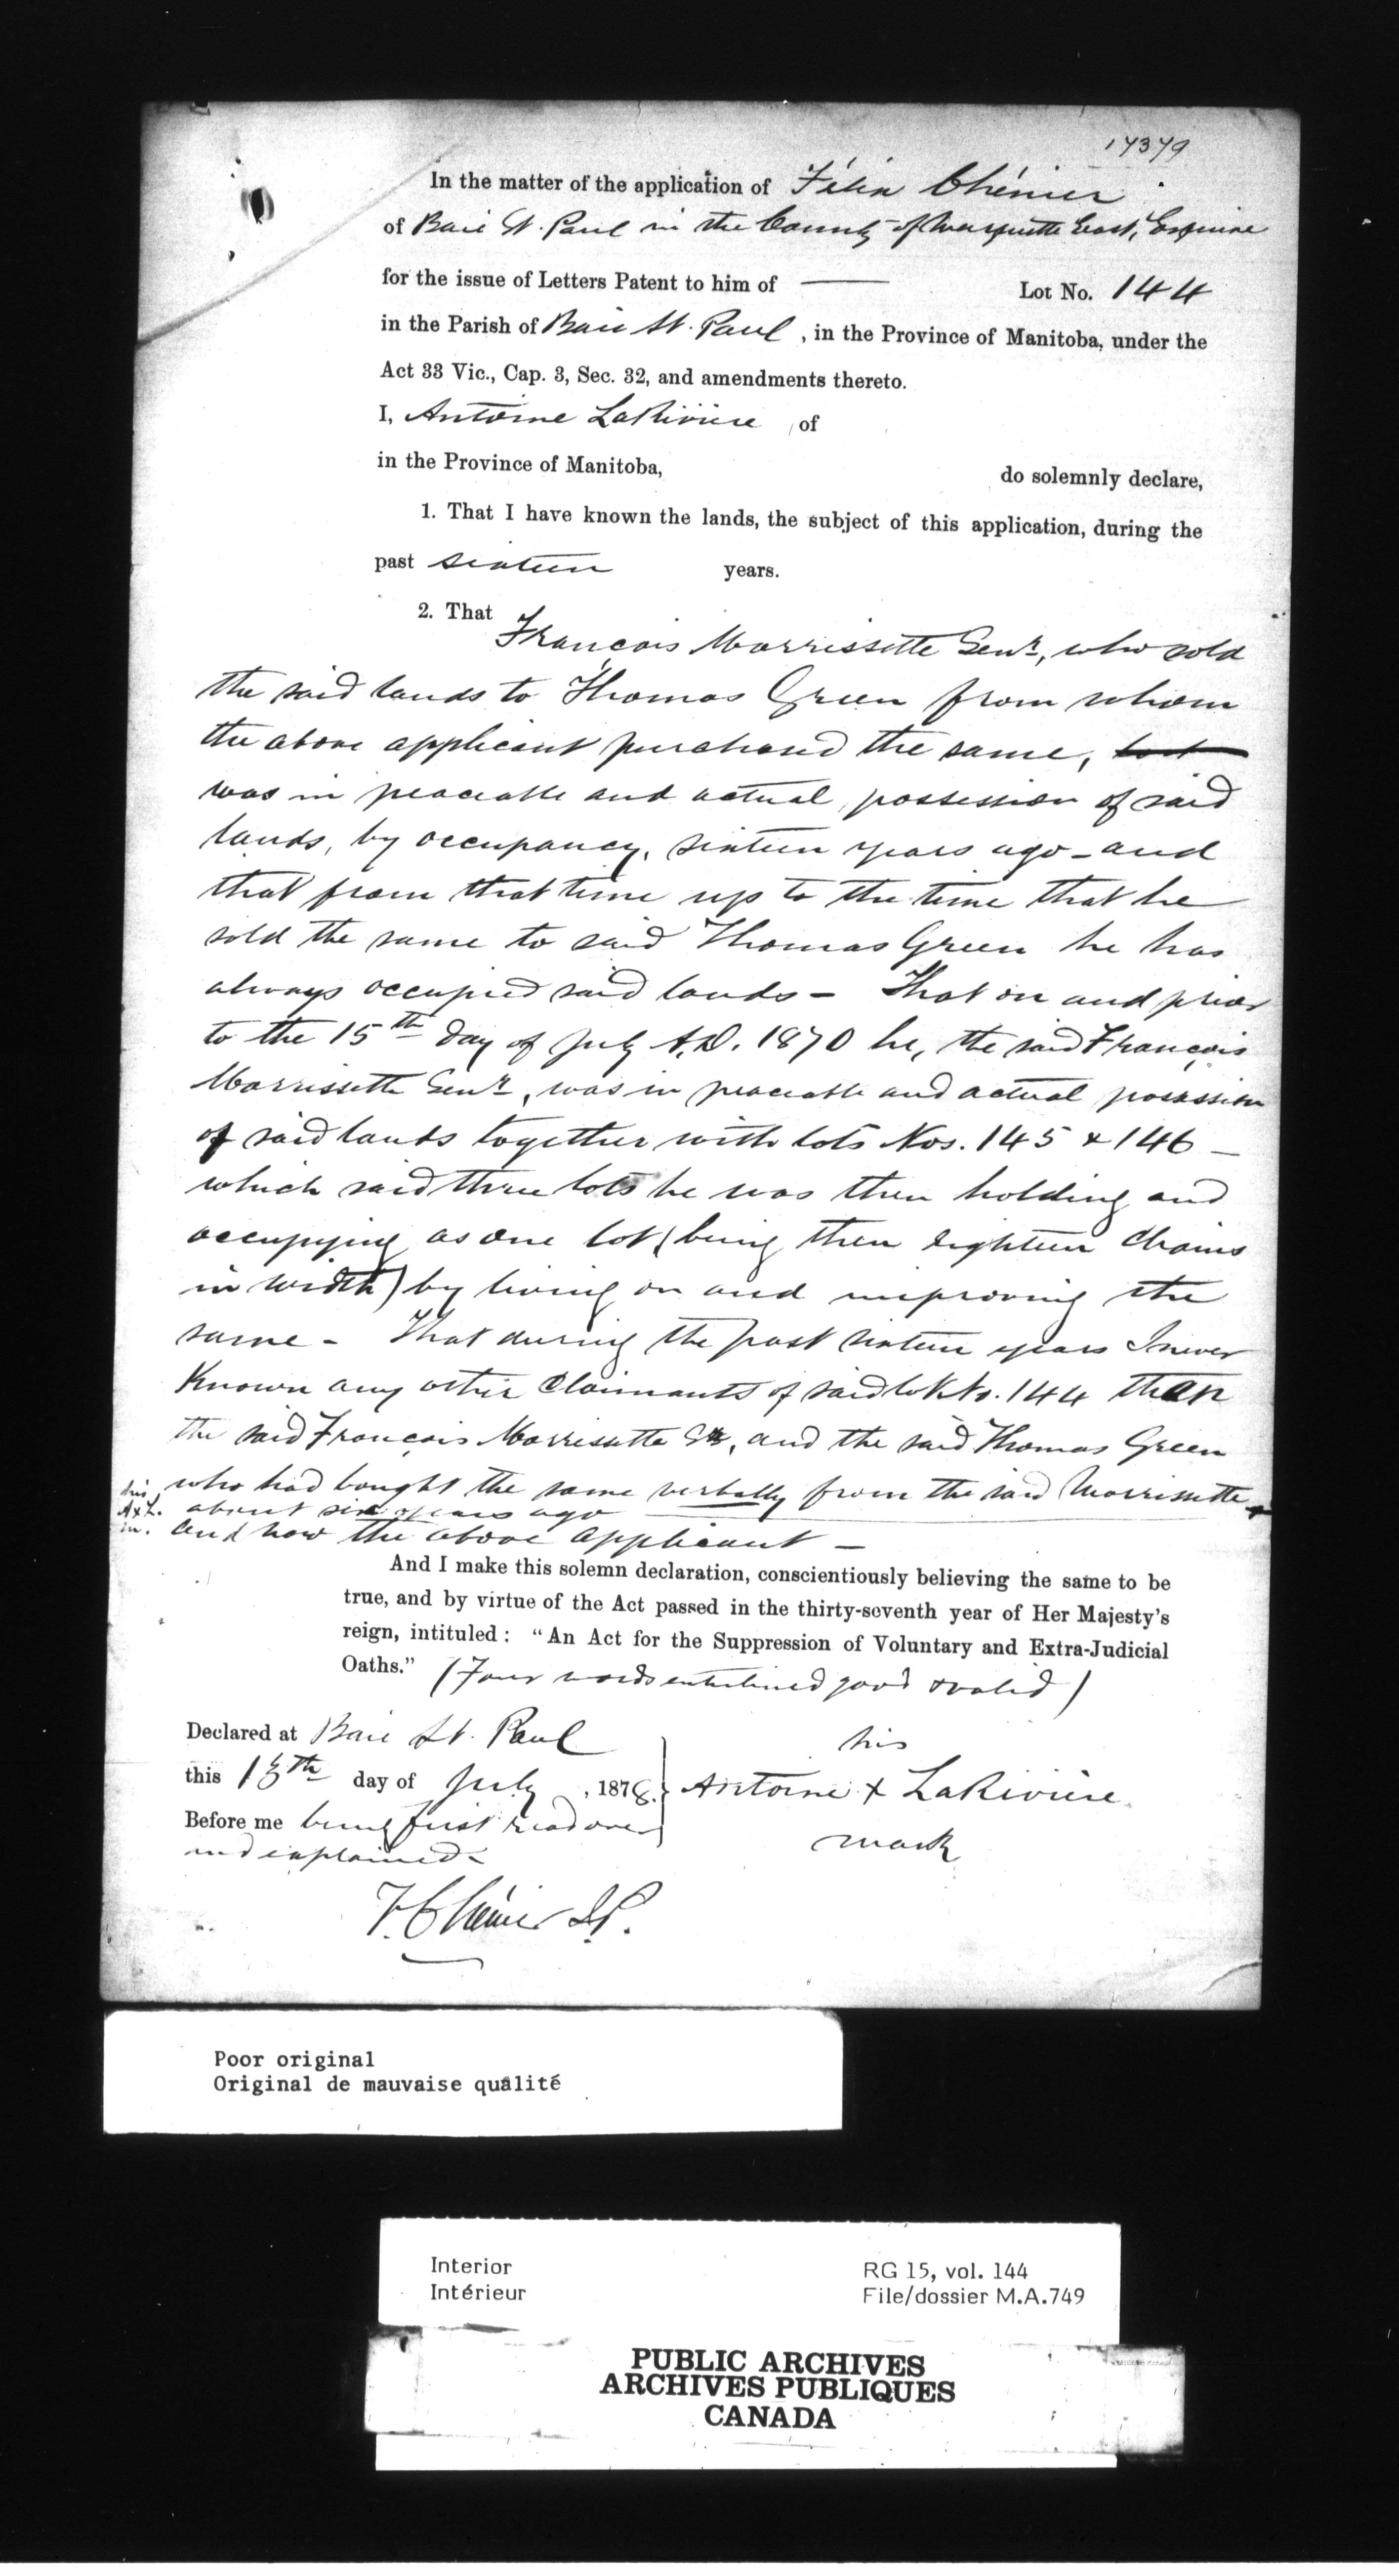 17379
In the matter of the application of Félix Chénier
of Baie St. Paul in the County of Marquette East, Esquire
for the issue of Letters Patent to him of — Lot No. 144
in the Parish of Baie St. Paul, in the Province of Manitoba, under the
Act 33 Vic., Cap. 3, Sec. 32, and amendments thereto.
I, Antoine LaRivière, of
in the Province of Manitoba, do solemnly declare,
1. That I have known the lands, the subject of this application, during the
past sixteen years.
2. That
François Morrissette Senr., who sold
the said lands to Thomas Green from whom
the above applicant purchased the same,
was in peaceable and actual possession of said
lands, by occupancy, sixteen years ago - and
that from that time up to the time that he
sold the same to said Thomas Green he has
always occupied said lands - That on and prior
to the 15th day of July A.D. 1870 he, the said François
Morrissette Senr., was in peaceable and actual possession
of said lands together with lots Nos. 145 & 146 -
which said three lots he was then holding and
occupying as one lot (being then eighteen chains
in width) by living on and improving the
same - That during the past sixteen years I never
Known any other Claimants of said lot No. 144 than
the said François Morrissette Sr., and the said Thomas Green
who had bought the same verbally from the said Morrissette
his
A x L.
m.
about six years ago
and now the above applicant -
And I make this solemn declaration, conscientiously believing the same to be
true, and by virtue of the Act passed in the thirty-seventh year of Her Majesty's
reign, intituled: "An Act for the Suppression of Voluntary and Extra-Judicial
Oaths." (Four words enterlined good & valid)
Declared at Baie St. Paul
this 18th day of July, 1878.
Before me being first read over
and explained -
his
Antoine x LaRivière
mark
F. Chénier J.P.
Poor original
Original de mauvaise qualité
Interior
Intérieur
RG 15, vol. 144
File/dossier M.A.749
PUBLIC ARCHIVES
ARCHIVES PUBLIQUES
CANADA